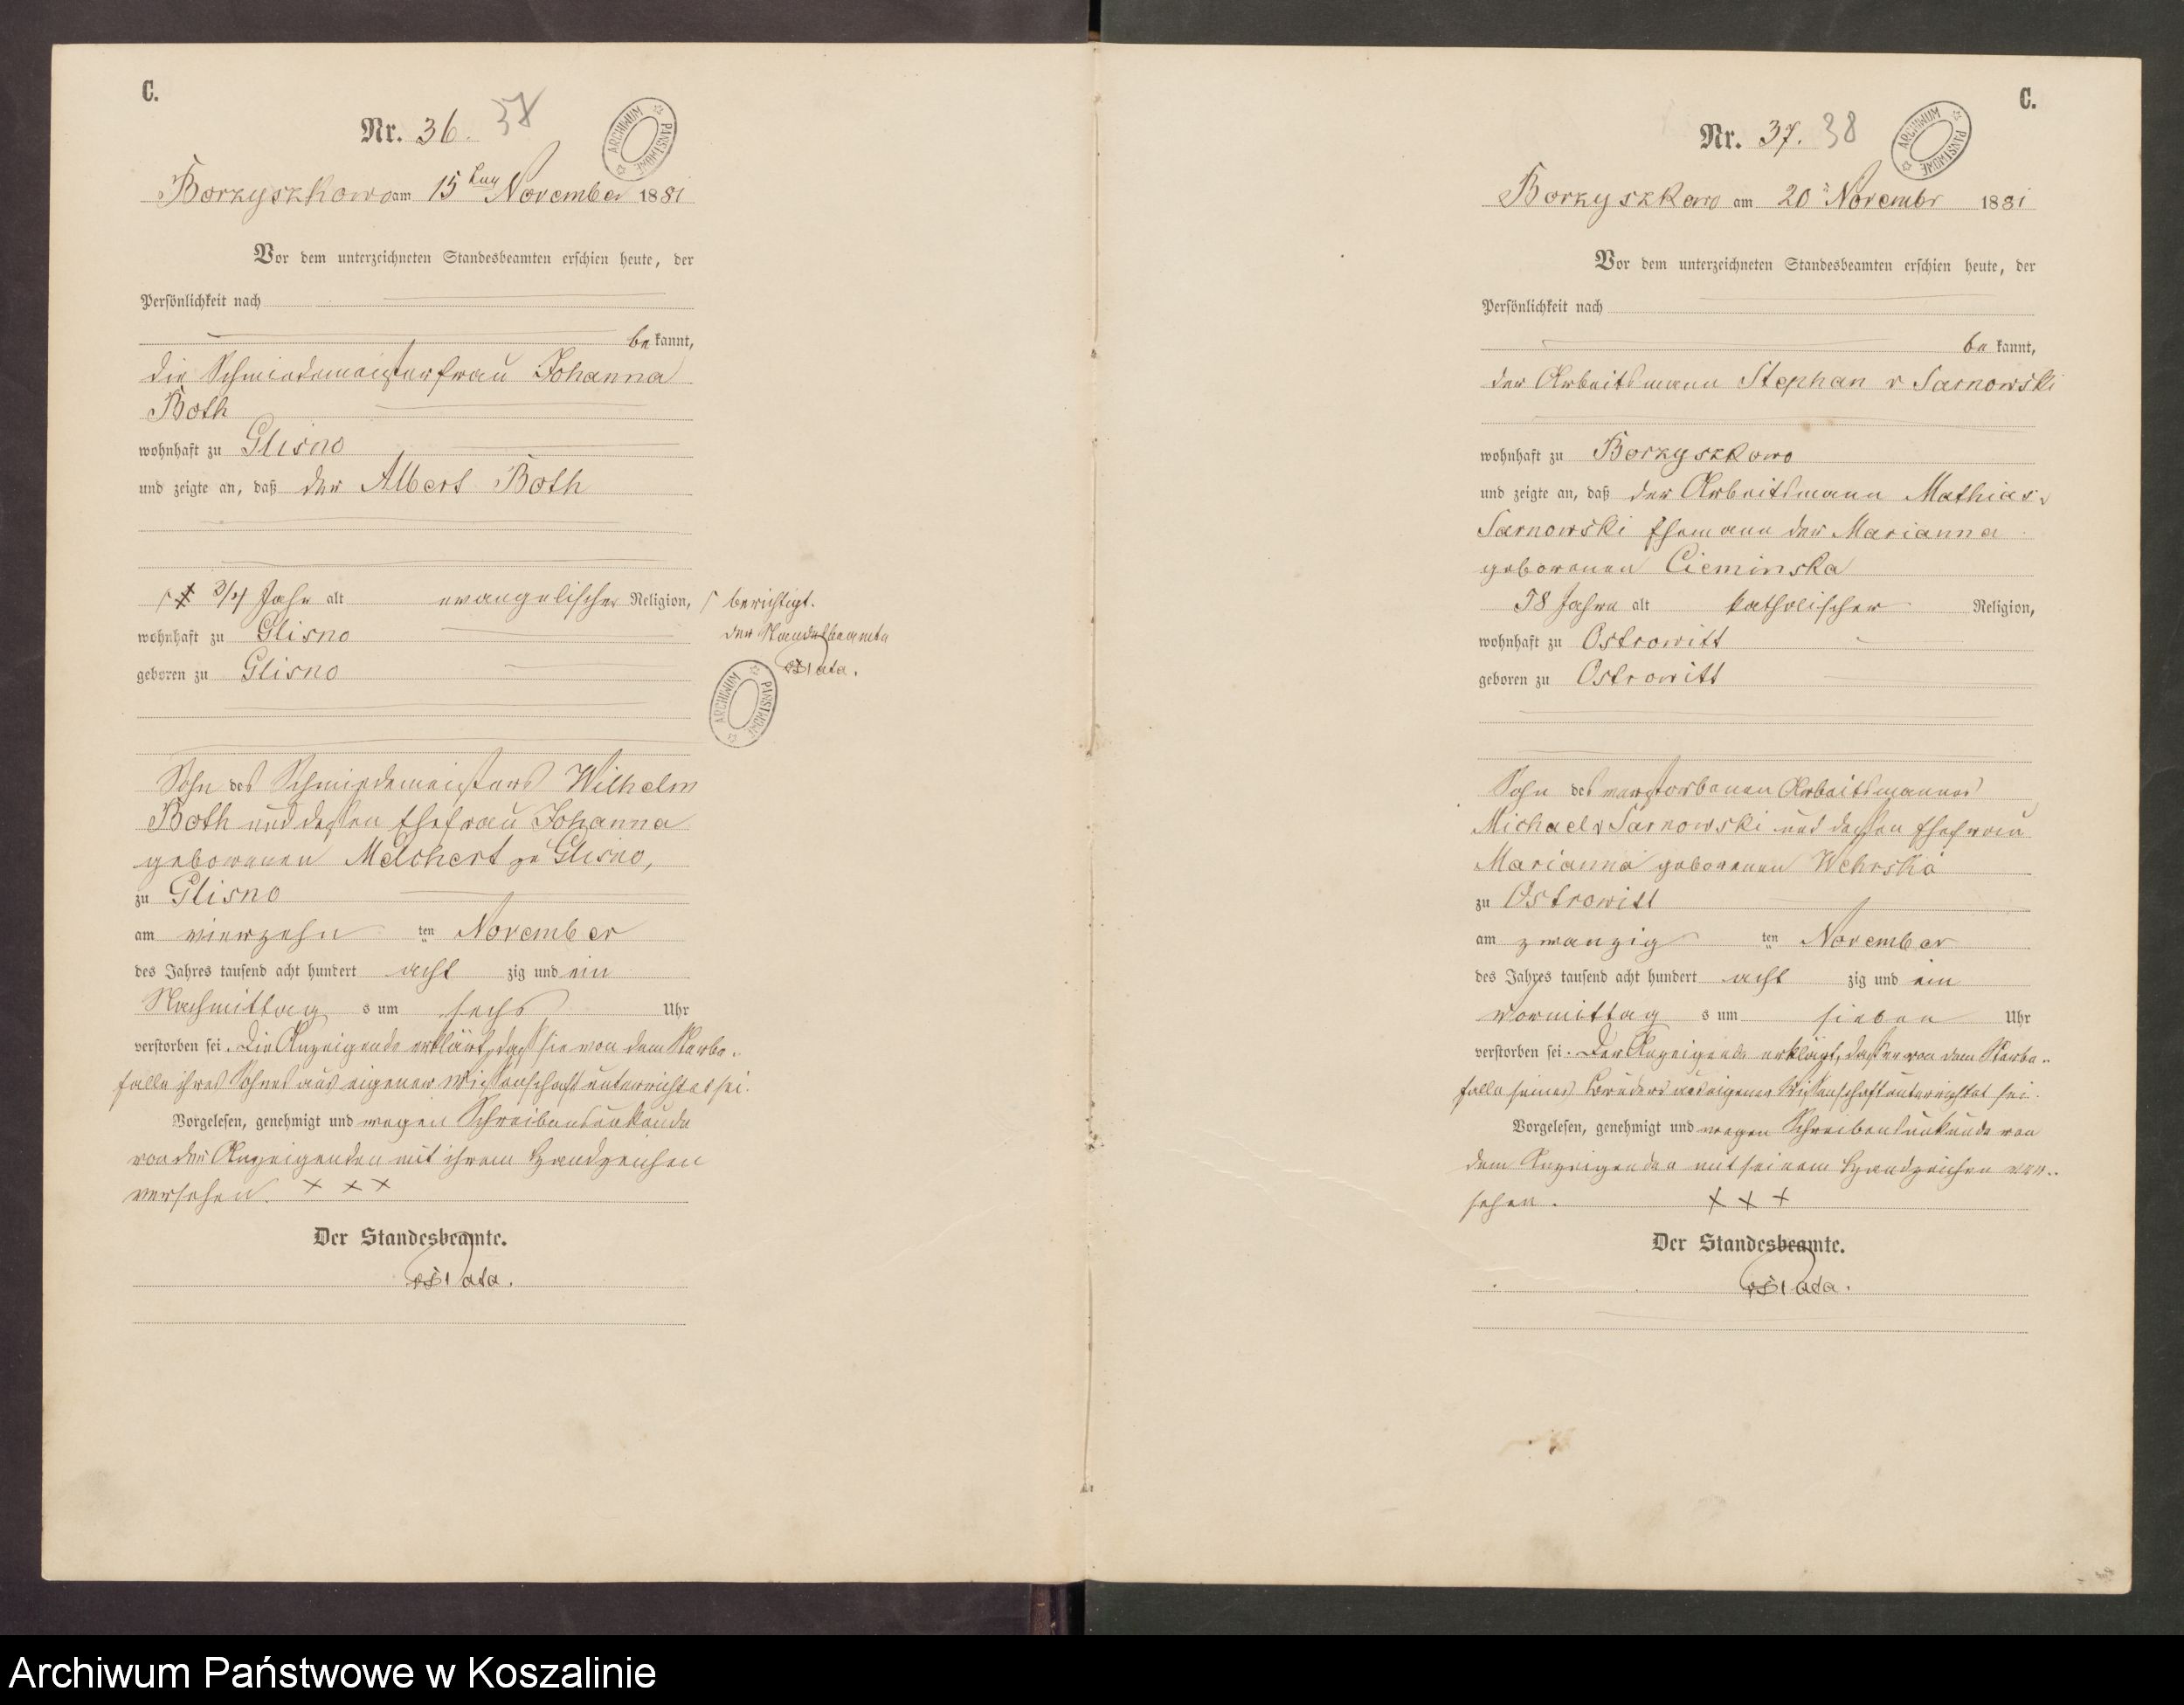 C.
Nr. 36. 37
ARCHIWUM PAŃSTWOWE
Borzyszkowo am 15ten November 1881
Vor dem unterzeichneten Standesbeamten erschien heute, der
Persönlichkeit nach
be kannt,
die Schmiedemeisterfrau Johanna
Both
wohnhaft zu Glisno
und zeigte an, daß der Albert Both
3/4 Jahr alt evangelischer Religion,
wohnhaft zu Glisno
geboren zu Glisno
berichtigt.
der Standesbeamte
ARCHIWUM PAŃSTWOWE
Sohn des Schmiedemeisters Wilhelm
Both und dessen Ehefrau Johanna
geborenen Melchert zu Glisno,
zu Glisno
am vierzehn ten November
des Jahres tausend acht hundert acht zig und ein
Nachmittag s um sechs Uhr
verstorben sei. Die Anzeigende erklärt, daß sie von dem Sterbe-
falle ihres Sohnes aus eigener Wissenschaft unterrichtet sei.
Vorgelesen, genehmigt und wegen Schreibensunkunde
von der Anzeigenden mit ihrem Handzeichen
versehen. + + +
Der Standesbeamte.
C.
Nr. 37. 38
ARCHIWUM PAŃSTWOWE
Borzyszkowo am 20 November 1881
Vor dem unterzeichneten Standesbeamten erschien heute, der
Persönlichkeit nach
be kannt,
der Arbeitsmann Stephan v Sarnowski
wohnhaft zu Borzyszkowo
und zeigte an, daß der Arbeitsmann Mathias v
Sarnowski Ehemann der Marianna
geborenen Cieminska
58 Jahre alt katholischer Religion,
wohnhaft zu Ostrowitt
geboren zu Ostrowitt
Sohn des verstorbenen Arbeitsmannes
Michael v Sarnowski und dessen Ehefrau
Marianna geborenen
zu Ostrowitt
am zwanzig ten November
des Jahres tausend acht hundert acht zig und ein
Vormittag s um sieben Uhr
verstorben sei. Der Anzeigende erklärt, daß er von dem Sterbe-
falle seines Bruders aus eigener Wissenschaft unterrichtet sei.
Vorgelesen, genehmigt und wegen Schreibensunkunde von
dem Anzeigenden mit seinem Handzeichen ver-
sehen. + + +
Der Standesbeamte.
Archiwum Państwowe w Koszalinie